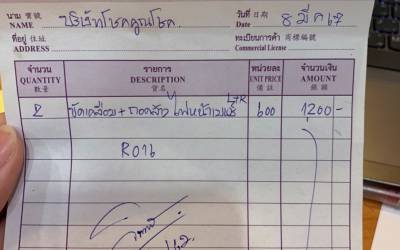 นาม 寶號
NAME บริษัทโชคคูณโชค
วันที่ 日期
DATE 8 มีค 67
ที่อยู่ 住址
ADDRESS
ทะเบียนการค้า 商標編號
Commercial License
จำนวน รายการ หน่วยละ จำนวนเงิน
QUANTITY DESCRIPTION UNIT PRICE AMOUNT
數量 貨名 備註 銀額
L+R
2 ขัดเคลือบ + ถอดล้าง ไฟหน้าเบนซ์ 600 1,200 -
R016